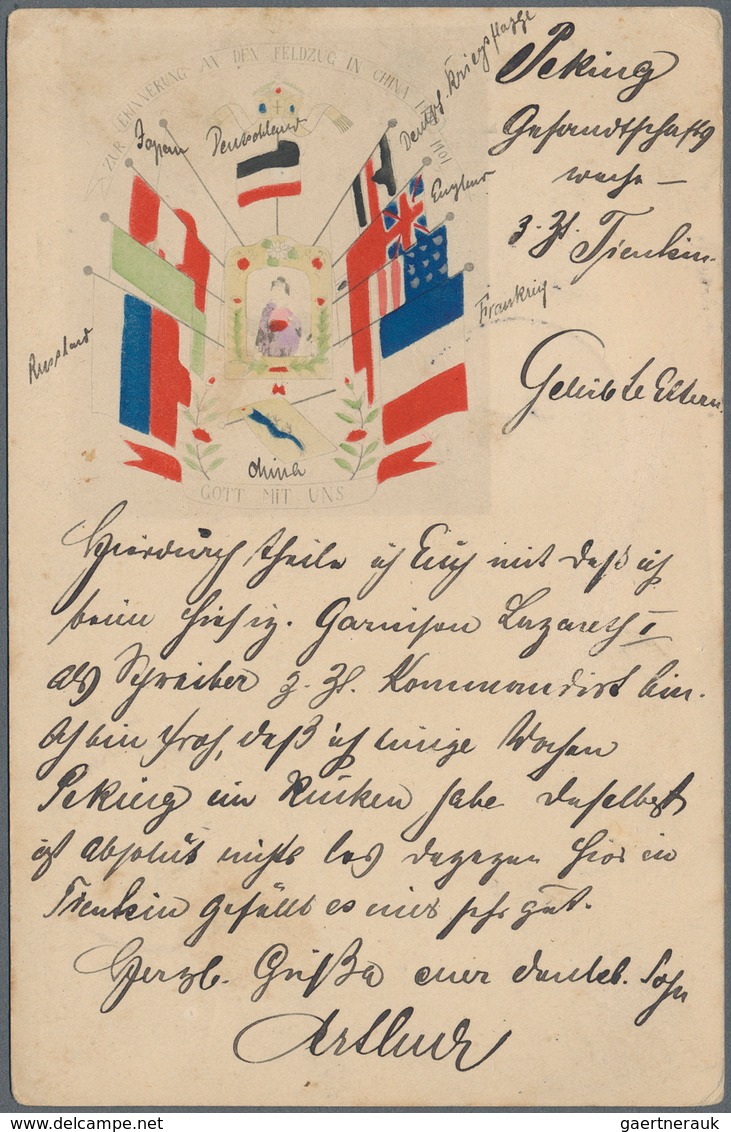 ZUR ERINNERUNG AN DEN FELDZUG IN CHINA 1901
Japan
Deutschland
Deutsch. Kriegsflagge
England
Frankrig
Russland
China
GOTT MIT UNS
Peking
Gesandtschafts
wache –
z. Zt. Tientsin.
Geliebte Eltern.
Hierdurch theile ich Euch mit daß ich
beim hiesig. Garnison Lazareth I
als Schreiber z. Zt. Kommandirt bin.
Ich bin froh, daß ich einige Wochen
Peking im Rücken habe daselbst
ist absolut nichts los dagegen hier in
Tientsin gefällt es mir sehr gut.
Herzl. Grüße euer dankb. Sohn
Arthur
gaertnerauk